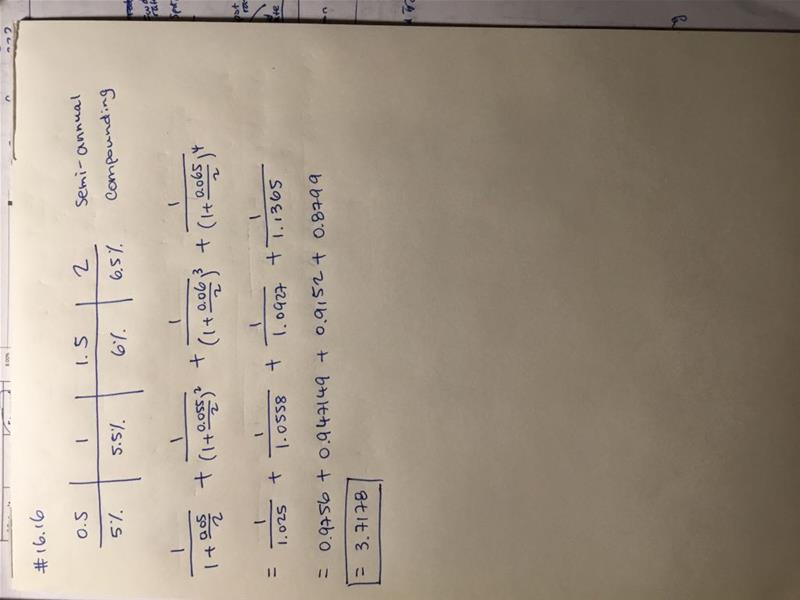 #16.16
0.5 1 1.5 2 semi-annual
5% 5.5% 6% 6.5% compounding
1/(1+0.05/2) + 1/(1+0.055/2)² + 1/(1+0.06/2)³ + 1/(1+0.065/2)⁴
= 1/1.025 + 1/1.0558 + 1/1.0927 + 1/1.1365
= 0.9756 + 0.947149 + 0.9152 + 0.8799
= 3.7178